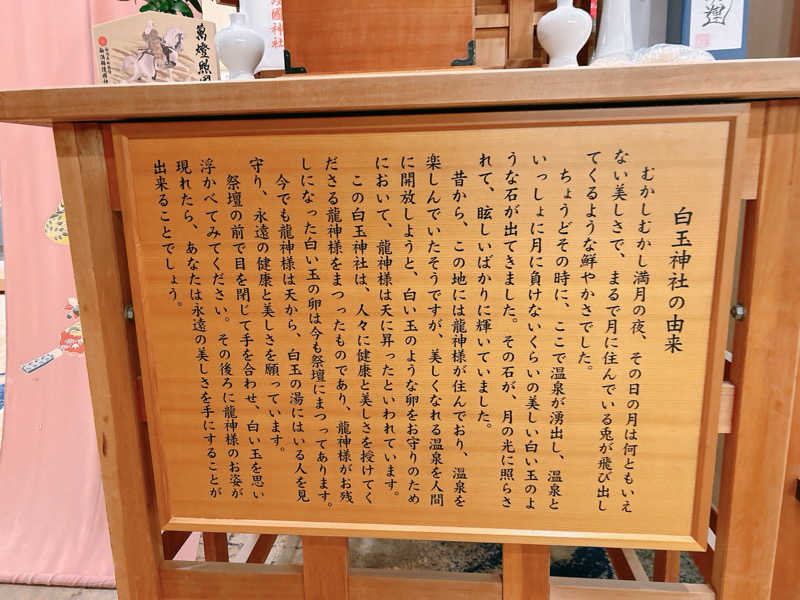 白玉神社の由来
むかしむかし満月の夜、その日の月は何ともいえ
ない美しさで、まるで月に住んでいる兎が飛び出し
てくるような鮮やかさでした。
ちょうどその時に、ここで温泉が湧出し、温泉と
いっしょに月に負けないくらいの美しい白い玉のよ
うな石が出てきました。その石が、月の光に照らさ
れて、眩しいばかりに輝いていました。
昔から、この地には龍神様が住んでおり、温泉を
楽しんでいたそうですが、美しくなれる温泉を人間
に開放しようと、白い玉のような卵をお守りのため
において、龍神様は天に昇ったといわれています。
この白玉神社は、人々に健康と美しさを授けてく
ださる龍神様をまつったものであり、龍神様がお残
しになった白い玉の卵は今も祭壇にまつってあります。
今でも龍神様は天から、白玉の湯にはいる人を見
守り、永遠の健康と美しさを願っています。
祭壇の前で目を閉じて手を合わせ、白い玉を思い
浮かべてみてください。その後ろに龍神様のお姿が
現れたら、あなたは永遠の美しさを手にすることが
出来ることでしょう。
國神社
萬燈照